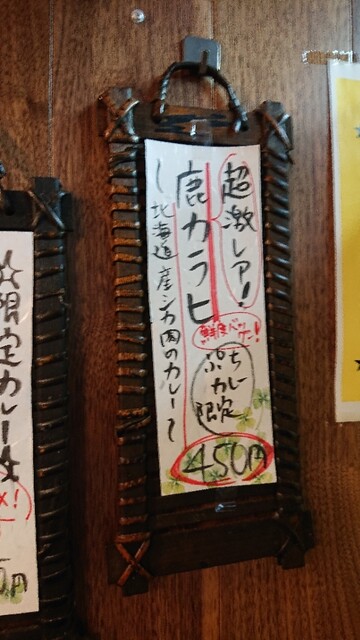 超激レア!
鹿カラヒ
鮮度バツグン!
ぷちカレー
限定
450円
〜北海道産シカ肉のカレー〜
☆限定カレー☆
円